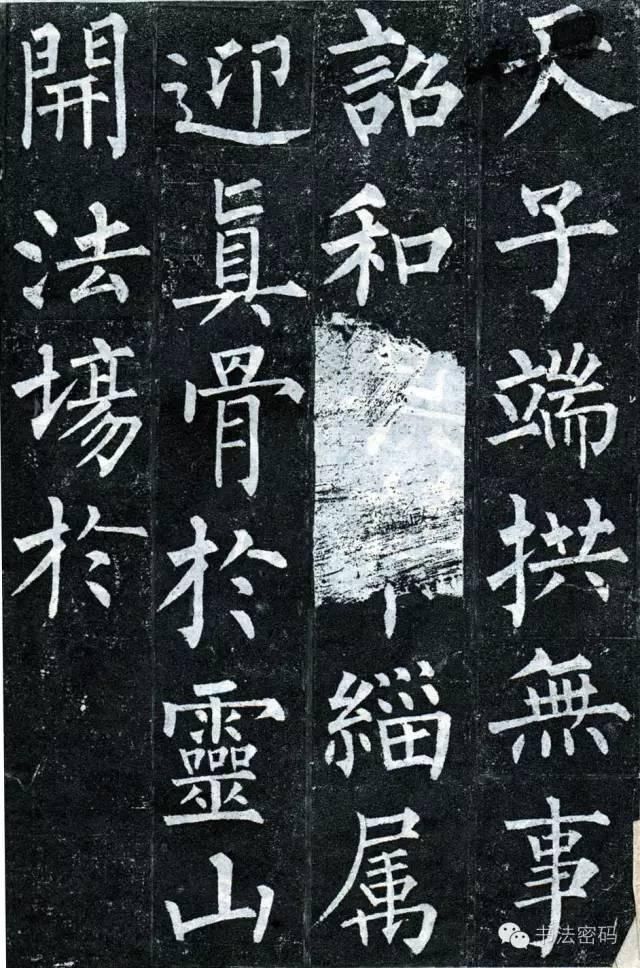 天子端拱無事
詔和緇属
迎真骨於靈山
開法場於
书法密码